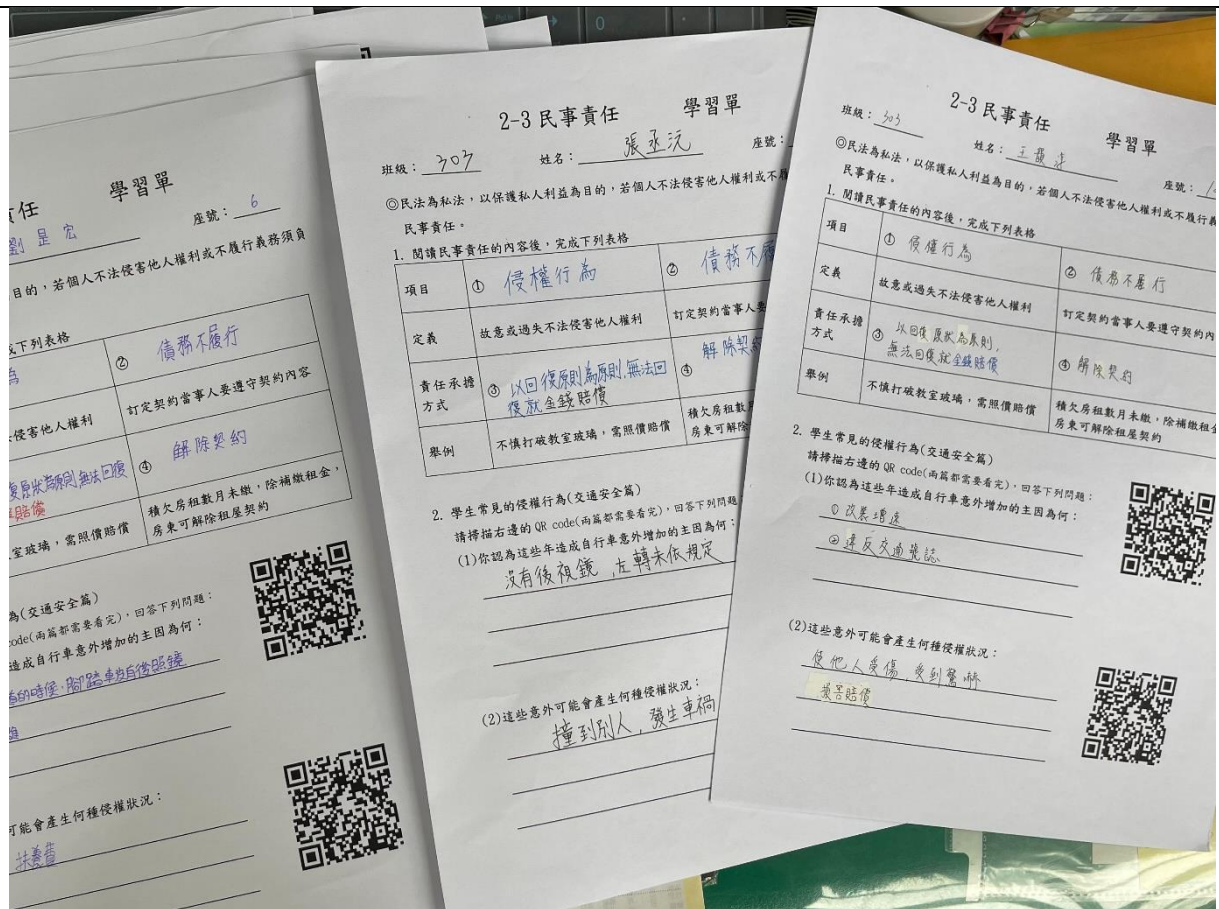 學習單
座號：6
劉是宏
目的，若個人不法侵害他人權利或不履行義務須負
下列表格
② 債務不履行
侵害他人權利
訂定契約當事人要遵守契約內容
復原狀為原則,無法回復
賠償
④ 解除契約
室玻璃，需照價賠償
積欠房租數月未繳，除補繳租金，
房東可解除租屋契約
為(交通安全篇)
code(兩篇都需要看完)，回答下列問題：
造成自行車意外增加的主因為何：
的時候,腳踏車沒有後照鏡
可能會產生何種侵權狀況：
2-3 民事責任 學習單
班級：303 姓名：張丞沅 座號：
◎民法為私法，以保護私人利益為目的，若個人不法侵害他人權利或不
民事責任。
1. 閱讀民事責任的內容後，完成下列表格
項目 ① 侵權行為 ② 債務不履
定義 故意或過失不法侵害他人權利 訂定契約當事人要
責任承擔方式 ③ 以回復原則為原則,無法回
復就金錢賠償
④ 解除契約
舉例 不慎打破教室玻璃，需照價賠償
積欠房租數
房東可解除
2. 學生常見的侵權行為(交通安全篇)
請掃描右邊的 QR code(兩篇都需要看完)，回答下列問題
(1)你認為這些年造成自行車意外增加的主因為何：
沒有後視鏡,左轉未依規定
(2)這些意外可能會產生何種侵權狀況：
撞到別人,發生車禍
2-3 民事責任 學習單
班級：303 姓名：王 座號：
◎民法為私法，以保護私人利益為目的，若個人不法侵害他人權利或不履行義
民事責任。
1. 閱讀民事責任的內容後，完成下列表格
項目 ① 侵權行為 ② 債務不履行
定義 故意或過失不法侵害他人權利 訂定契約當事人要遵守契約內
責任承擔方式 ③ 以回復原狀為原則,
無法回復就金錢賠償
④ 解除契約
舉例 不慎打破教室玻璃，需照價賠償
積欠房租數月未繳，除補繳租金
房東可解除租屋契約
2. 學生常見的侵權行為(交通安全篇)
請掃描右邊的 QR code(兩篇都需要看完)，回答下列問題：
(1)你認為這些年造成自行車意外增加的主因為何：
① 改裝增速
② 違反交通號誌
(2)這些意外可能會產生何種侵權狀況：
使他人受傷,受到驚嚇
損害賠償